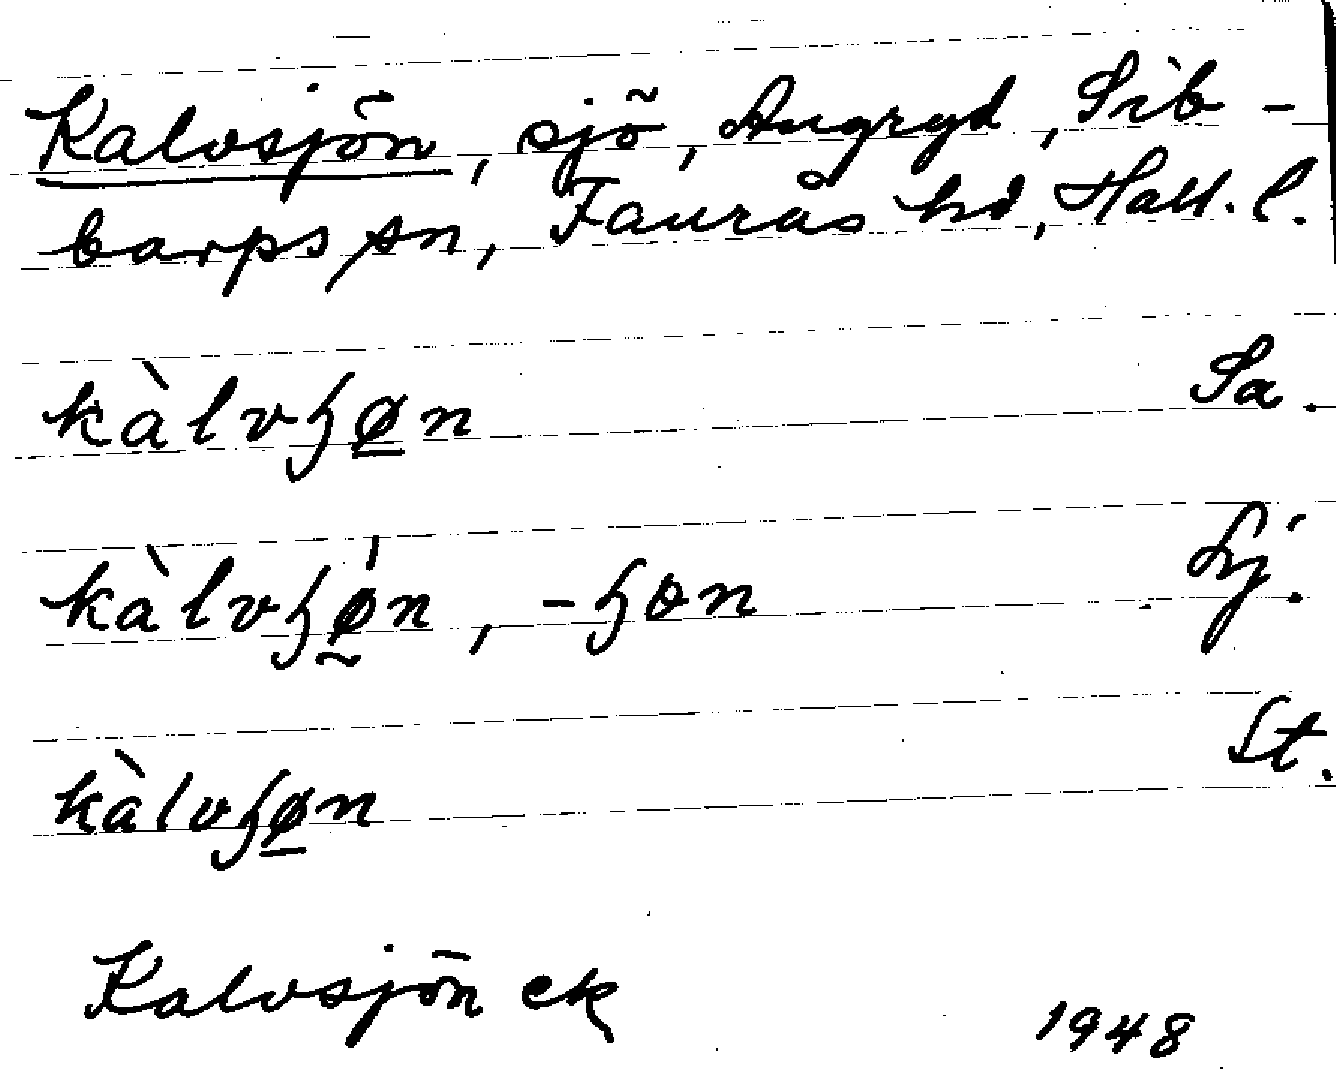 Kalvsjön, sjö, Angryd, Sib-
barps sn, Faurås hd, Hall. l.
kàlvɧø̲n Sa.
kàlvɧǿ̰n, -ɧɵn Lj.
kàlvɧø̲n St.
Kalvsjön ek
1948